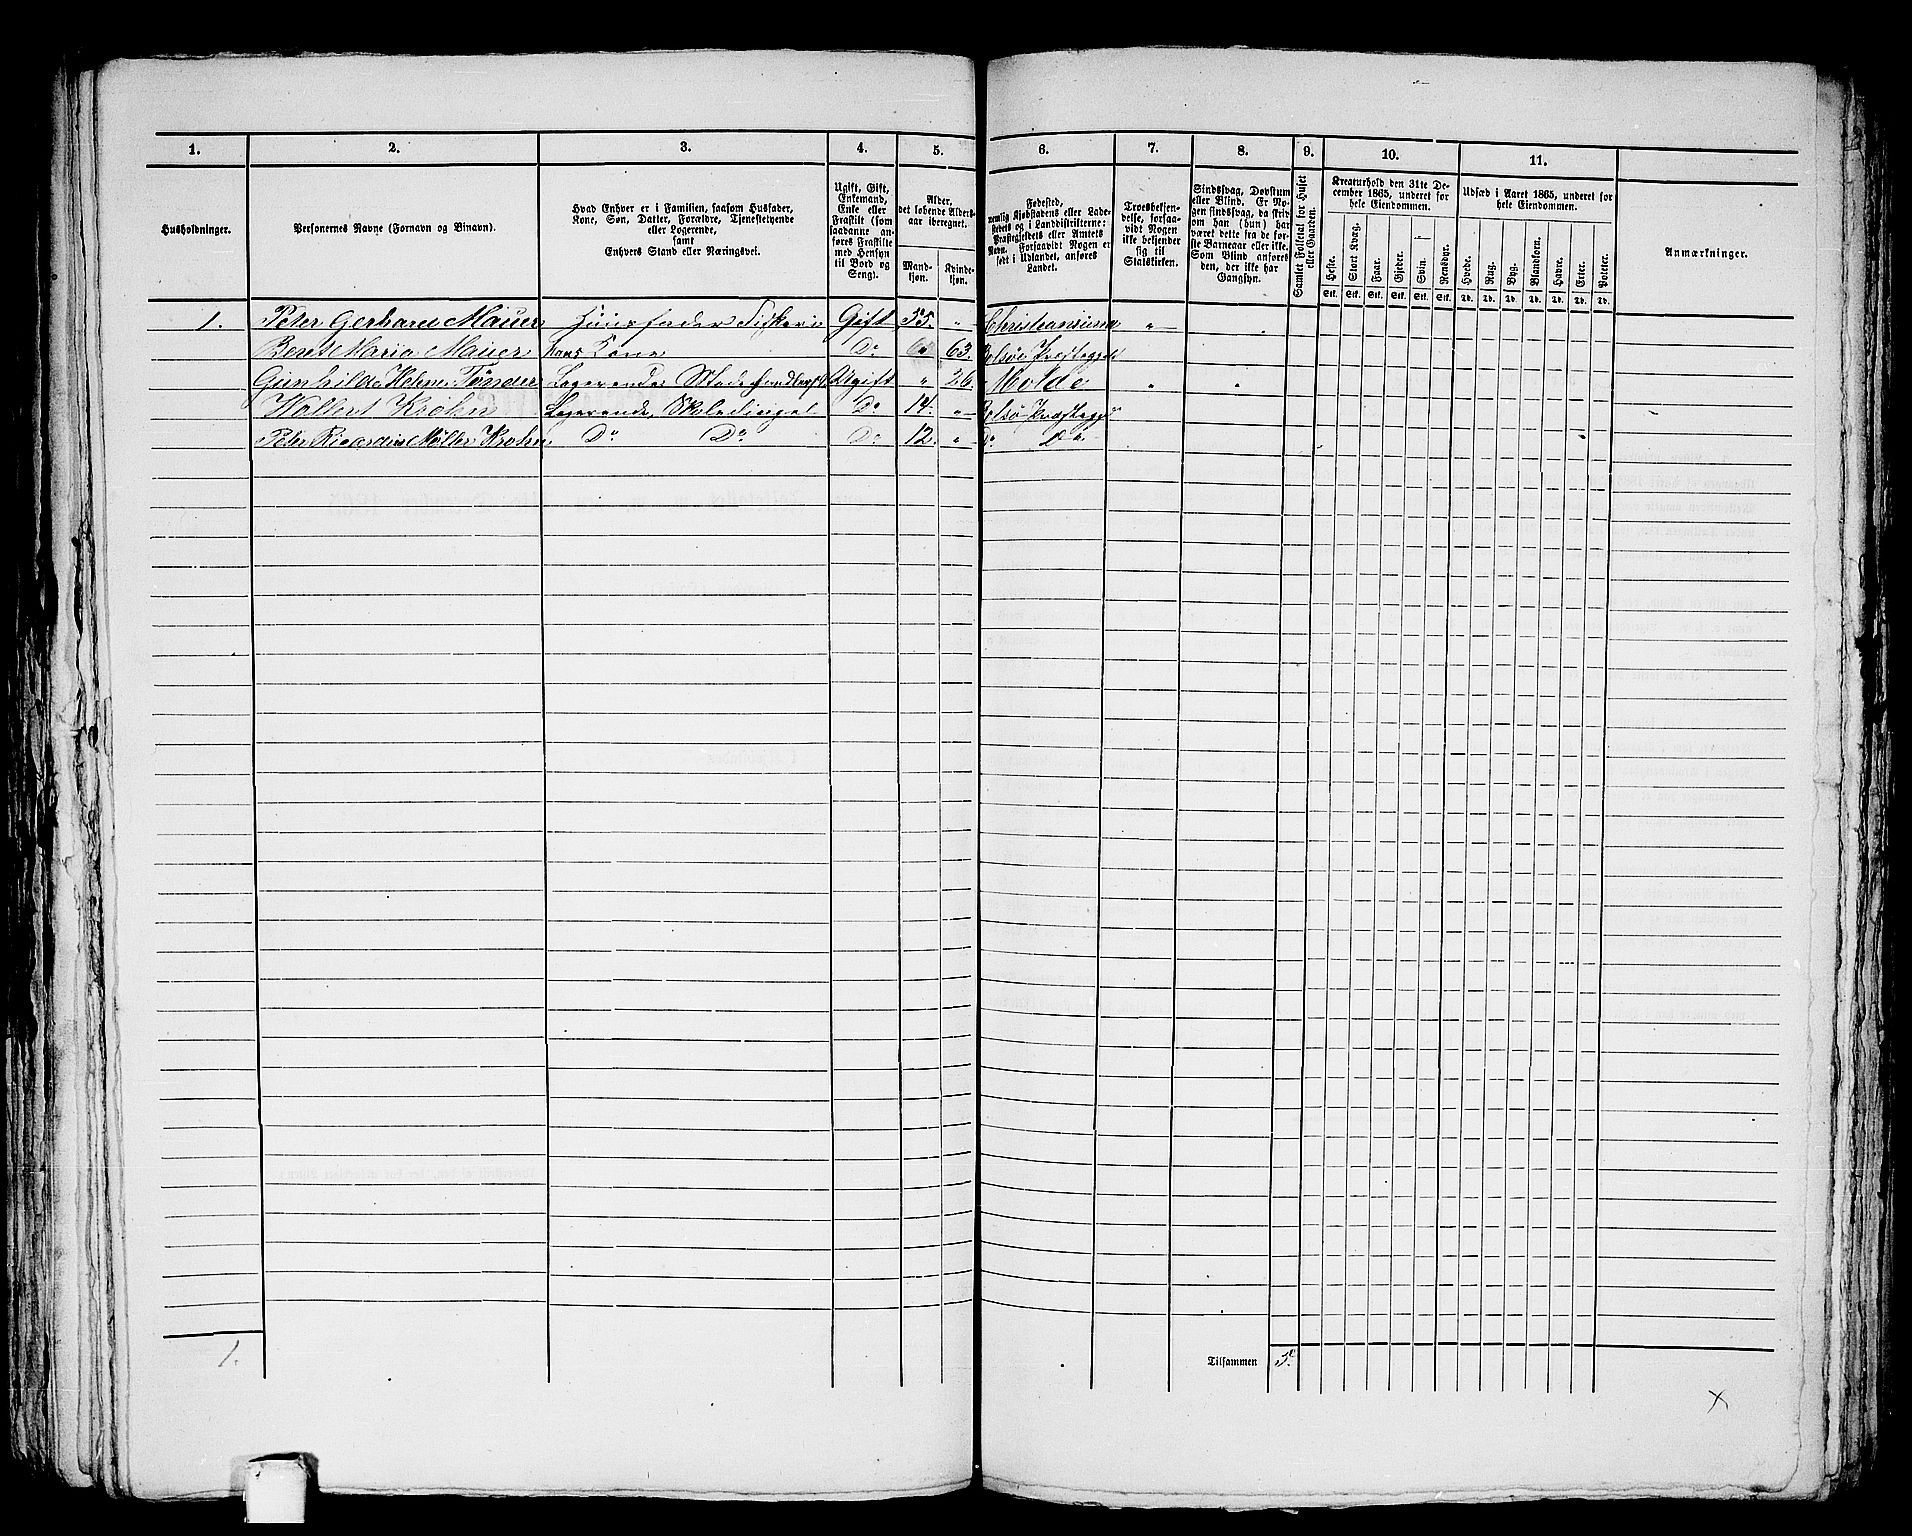 1. 2. 3. 4. 5. 6. 7. 8. 9. 10. 11.
Husholdninger.
Personernes Navne (Fornavn og Binavn).
Hvad Enhver er i Familien, saasom Husfader,
Kone, Søn, Datter, Forældre, Tjenestetyende
eller Logerende,
samt
Enhvers Stand eller Næringsvei.
Ugift, Gift,
Enkemand,
Enke eller
Fraskilt (som
saadanne an-
føres Fraskilte
med Hensyn
til Bord og
Seng).
Alder,
det løbende Alders-
aar iberegnet.
Mand-
kjøn.
Kvinde-
kjøn.
Fødested,
nemlig Kjøbstadens eller Lade-
stedets og i Landdistrikterne:
Præstegjeldets eller Amtets
Navn. Forsaavidt Nogen er
født i Udlandet, anføres
Landet.
Troesbekjen-
delse, forsaa-
vidt Nogen
ikke bekjender
sig til
Statskirken.
Sindssvag, Døvstum
eller Blind. Er No-
gen sindssvag, da skriv
om han (hun) har
været dette fra de for-
ste Barneaar eller ikke.
Som Blind anføres
den, der ikke har
Gangsyn.
Samlet Folketal for Huset
eller Gaarden.
Kreaturhold den 31te De-
cember 1865, underet for
hele Eiendommen.
Heste.
Stort Kvæg.
Faar.
Gjeder.
Svin.
Rensdyr.
Stk. Stk. Stk. Stk. Stk. Stk.
Udsæd i Aaret 1865, underet for
hele Eiendommen.
Hvede.
Rug.
Byg.
Blandkorn.
Havre.
Erter.
Poteter.
Td. Td. Td. Td. Td. Td. Td.
Anmærkninger.
1. Peter Gerhard Mauer Huusfader Fiskeri Gift 55. " Christiansund "
Berit Maria Mauer hans Kone Do " 63. Bolsø Præstegjeld
Gunhild Helene Tønder Logerende Ugift " 26. Molde " "
Wallert Krohn Logerende, Do 14. " Bolsø
Peter Møller Krohn Do Do Do 12. " Do Do
1.
Tilsammen 5.
x